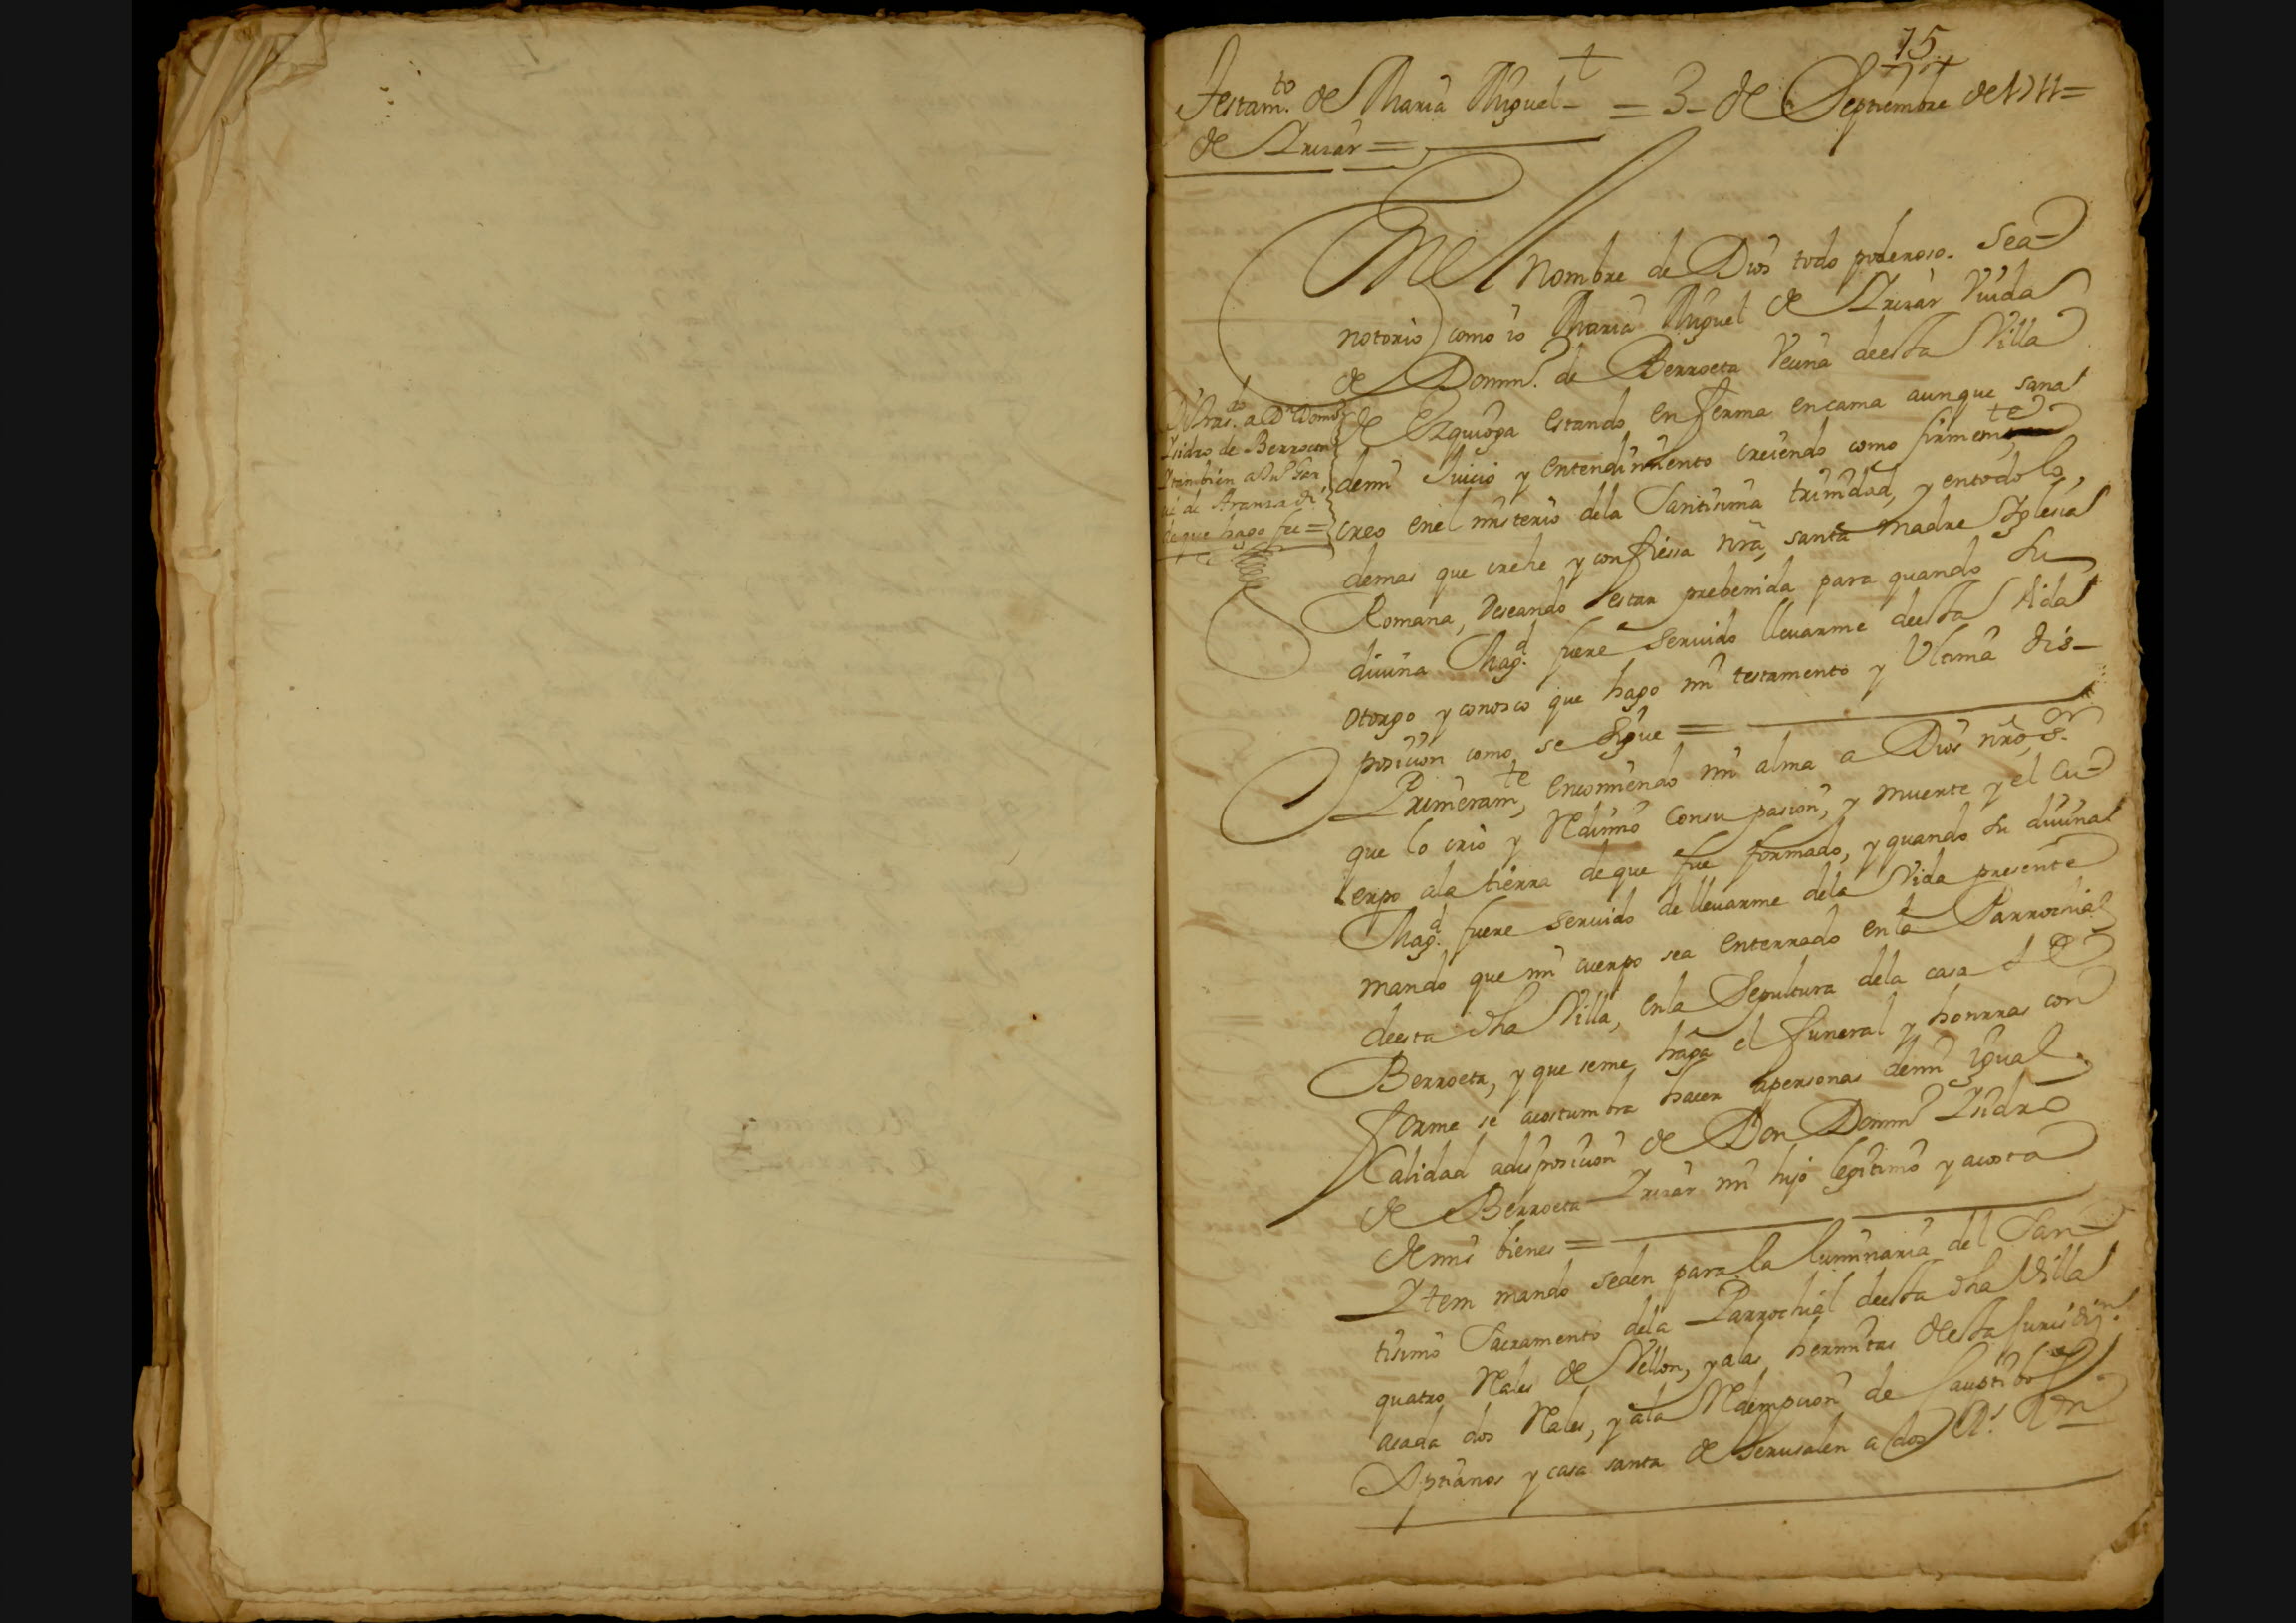 75
+
Testam.to de Maria Miguel - = 3 - de Septiembre de 1711 =
de Yrizar =
En el Nombre de Dios todo poderoso. Sea
notorio como io Maria Miguel de Yrizar Viuda
de Domin.o de Berroeta Vecina de esta Villa
de Ezquioga estando enferma en cama aunque sana
de mi Juicio y entendimiento creiendo como firmem.te
creo en el misterio de la Santisima trinidad, y en todo lo
demas que crehe y confiessa nrã santa Madre Yglesia
Romana, Deseando estar prebenida para quando Su
divina Mag.d fuere Servido llevarme de esta Vida
otorgo y conosco que hago mi testamento y Ultima dis-
posicion como se Sigue =
Primeram.te encomiendo mi alma a Dios nrõ S.or
que lo crio y Redimio con su pasion, y muerte y el cu-
erpo a la tierra de que fue formado, y quando Su divina
Mag.d fuere Servido de llevarme de la Vida presente
mando que mi cuerpo sea enterrado en la Parrochial
de esta dha Villa, en la Sepultura de la casa de
Berroeta, y que se me haga el funeral y honrras con
forme se acostumbra hacer a personas de mi igual
Calidad a disposicion de Don Domin.o Ysidro
de Berroeta Yrizar mi hijo legitimo y a costa
de mis bienes =
Ytem mando se den para la luminaria del San
tisimo Sacramento de la Parrochial de esta dha Villa
quatro Rales de Vellon, y a las hermitas de esta Jurisdi.on
a cada dos Rales, y a la Redempcion de Cautibos
Xptianos y casa santa de Jerusalen a dos R.s
a D.n Domi.o
Ysidro de Berroeta
Y tambien a
de Aranza
de que hago fee =